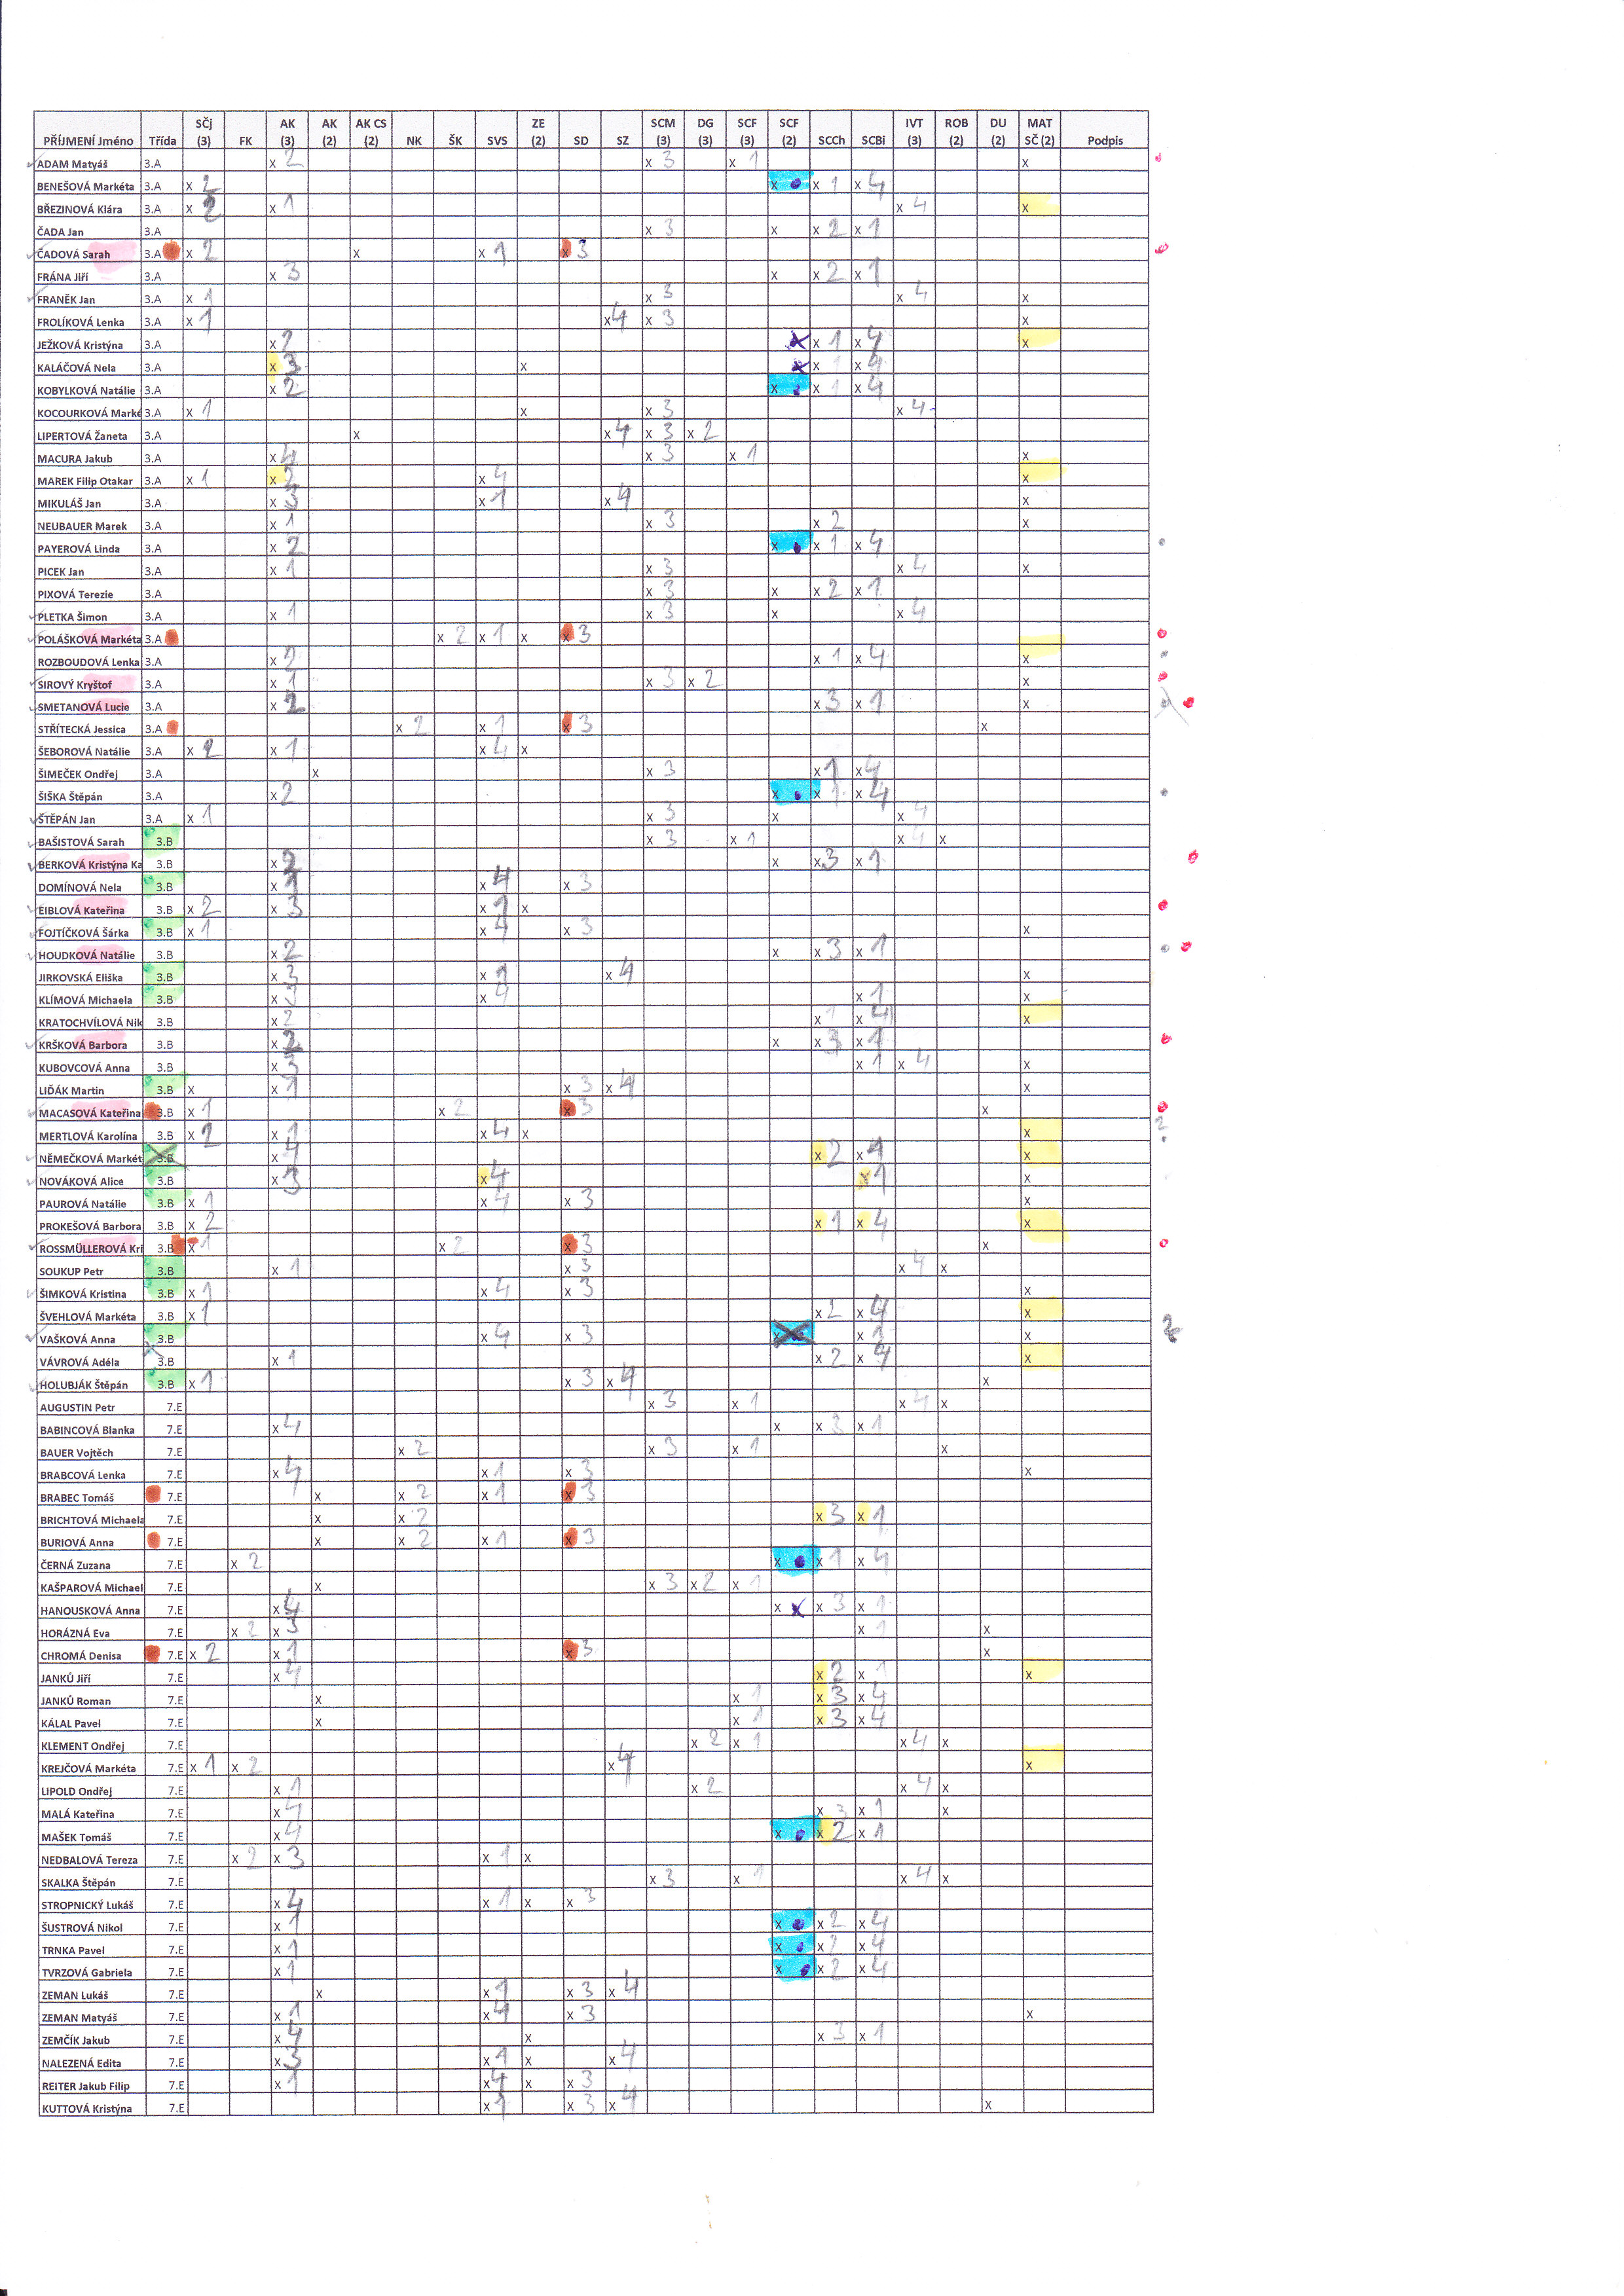 PŘÍJMENÍ Jméno Třída SČj (3) FK AK (3) AK (2) AK CS (2) NK ŠK SVS ZE (2) SD SZ SCM (3) DG (3) SCF (3) SCF (2) SCCh SCBi IVT (3) ROB (2) DU (2) MAT SČ (2) Podpis
ADAM Matyáš 3.A x 2 x 3 x 1 x
BENEŠOVÁ Markéta 3.A x 2 x x 1 x 4
BŘEZINOVÁ Klára 3.A x 2 x 1 x 4 x
ČADA Jan 3.A x 3 x x 2 x 1
ČADOVÁ Sarah 3.A x 2 x x 1 x 3
FRÁNA Jiří 3.A x 3 x x 2 x 1
FRANĚK Jan 3.A x 1 x 3 x 4 x
FROLÍKOVÁ Lenka 3.A x 1 x 4 x 3 x
JEŽKOVÁ Kristýna 3.A x 2 x x 1 x 4 x
KALÁČOVÁ Nela 3.A x 3 x x x 1 x 4
KOBYLKOVÁ Natálie 3.A x 2 x x 1 x 4
KOCOURKOVÁ Marké 3.A x 1 x x 3 x 4
LIPERTOVÁ Žaneta 3.A x x 4 x 3 x 2
MACURA Jakub 3.A x 4 x 3 x 1 x
MAREK Filip Otakar 3.A x 1 x x 4 x
MIKULÁŠ Jan 3.A x 3 x 1 x 4 x
NEUBAUER Marek 3.A x 1 x 3 x 2 x
PAYEROVÁ Linda 3.A x 2 x x 1 x 4
PICEK Jan 3.A x 1 x 3 x 4 x
PIXOVÁ Terezie 3.A x 3 x x 2 x 1
PLETKA Šimon 3.A x 1 x 3 x x 4
POLÁŠKOVÁ Markéta 3.A x 2 x 1 x x 3
ROZBOUDOVÁ Lenka 3.A x 2 x 1 x 4 x
SIROVÝ Kryštof 3.A x 1 x 3 x 2 x
SMETANOVÁ Lucie 3.A x 2 x 3 x 1 x
STŘÍTECKÁ Jessica 3.A x 2 x 1 x 3 x
ŠEBOROVÁ Natálie 3.A x 2 x 1 x 4 x
ŠIMEČEK Ondřej 3.A x x 3 x 1 x 4
ŠIŠKA Štěpán 3.A x 2 x x 1 x 4
ŠTĚPÁN Jan 3.A x 1 x 3 x x 4
BAŠISTOVÁ Sarah 3.B x 3 x 1 x 4 x
BERKOVÁ Kristýna Ka 3.B x 2 x x 3 x 1
DOMÍNOVÁ Nela 3.B x 1 x 4 x 3
EIBLOVÁ Kateřina 3.B x 2 x 3 x 1 x
FOJTÍČKOVÁ Šárka 3.B x 1 x 4 x 3 x
HOUDKOVÁ Natálie 3.B x 2 x x 3 x 1
JIRKOVSKÁ Eliška 3.B x 3 x 1 x 4 x
KLÍMOVÁ Michaela 3.B x 3 x 4 x 1 x
KRATOCHVÍLOVÁ Nik 3.B x 2 x 1 x 4 x
KRŠKOVÁ Barbora 3.B x 2 x x 3 x 1
KUBOVCOVÁ Anna 3.B x 3 x 1 x 4 x
LIĎÁK Martin 3.B x x 1 x 3 x 4 x
MACASOVÁ Kateřina 3.B x 1 x 2 x 3 x
MERTLOVÁ Karolína 3.B x 2 x 1 x 4 x x 2
NĚMEČKOVÁ Markét 3.B x 4 x 2 x 1 x
NOVÁKOVÁ Alice 3.B x 3 x 4 x 1 x
PAUROVÁ Natálie 3.B x 1 x 4 x 3 x
PROKEŠOVÁ Barbora 3.B x 2 x 1 x 4 x
ROSSMÜLLEROVÁ Kri 3.B x 1 x 2 x 3 x
SOUKUP Petr 3.B x 1 x 3 x 4 x
ŠIMKOVÁ Kristina 3.B x 1 x 4 x 3 x
ŠVEHLOVÁ Markéta 3.B x 1 x 2 x 4 x
VAŠKOVÁ Anna 3.B x 4 x 3 x x 1 x
VÁVROVÁ Adéla 3.B x 1 x 2 x 4 x
HOLUBJÁK Štěpán 3.B x 1 x 3 x 4 x
AUGUSTIN Petr 7.E x 3 x 1 x 4 x
BABINCOVÁ Blanka 7.E x 4 x x 3 x 1
BAUER Vojtěch 7.E x 2 x 3 x 1 x
BRABCOVÁ Lenka 7.E x 4 x 1 x 3 x
BRABEC Tomáš 7.E x x 2 x 1 x 3
BRICHTOVÁ Michaela 7.E x x 2 x 3 x 1
BURIOVÁ Anna 7.E x x 2 x 1 x 3
ČERNÁ Zuzana 7.E x 2 x x 1 x 4
KAŠPAROVÁ Michael 7.E x x 3 x 2 x 1
HANOUSKOVÁ Anna 7.E x 4 x x x 3 x 1
HORÁZNÁ Eva 7.E x 2 x 3 x 1 x
CHROMÁ Denisa 7.E x 2 x 1 x 3 x
JANKŮ Jiří 7.E x 4 x 2 x 1 x
JANKŮ Roman 7.E x x 1 x 3 x 4
KÁLAL Pavel 7.E x x 1 x 3 x 4
KLEMENT Ondřej 7.E x 2 x 1 x 4 x
KREJČOVÁ Markéta 7.E x 1 x 2 x 4 x
LIPOLD Ondřej 7.E x 1 x 2 x 4 x
MALÁ Kateřina 7.E x 4 x 3 x 1 x
MAŠEK Tomáš 7.E x 4 x x 2 x 1
NEDBALOVÁ Tereza 7.E x 2 x 3 x 1 x
SKALKA Štěpán 7.E x 3 x 1 x 4 x
STROPNICKÝ Lukáš 7.E x 4 x 1 x x 3
ŠUSTROVÁ Nikol 7.E x 1 x x 2 x 4
TRNKA Pavel 7.E x 1 x x 2 x 4
TVRZOVÁ Gabriela 7.E x 1 x x 2 x 4
ZEMAN Lukáš 7.E x x 1 x 3 x 4
ZEMAN Matyáš 7.E x 1 x 4 x 3 x
ZEMČÍK Jakub 7.E x 4 x x 3 x 1
NALEZENÁ Edita 7.E x 3 x 1 x x 4
REITER Jakub Filip 7.E x 1 x 4 x x 3
KUTTOVÁ Kristýna 7.E x 1 x 3 x 4 x